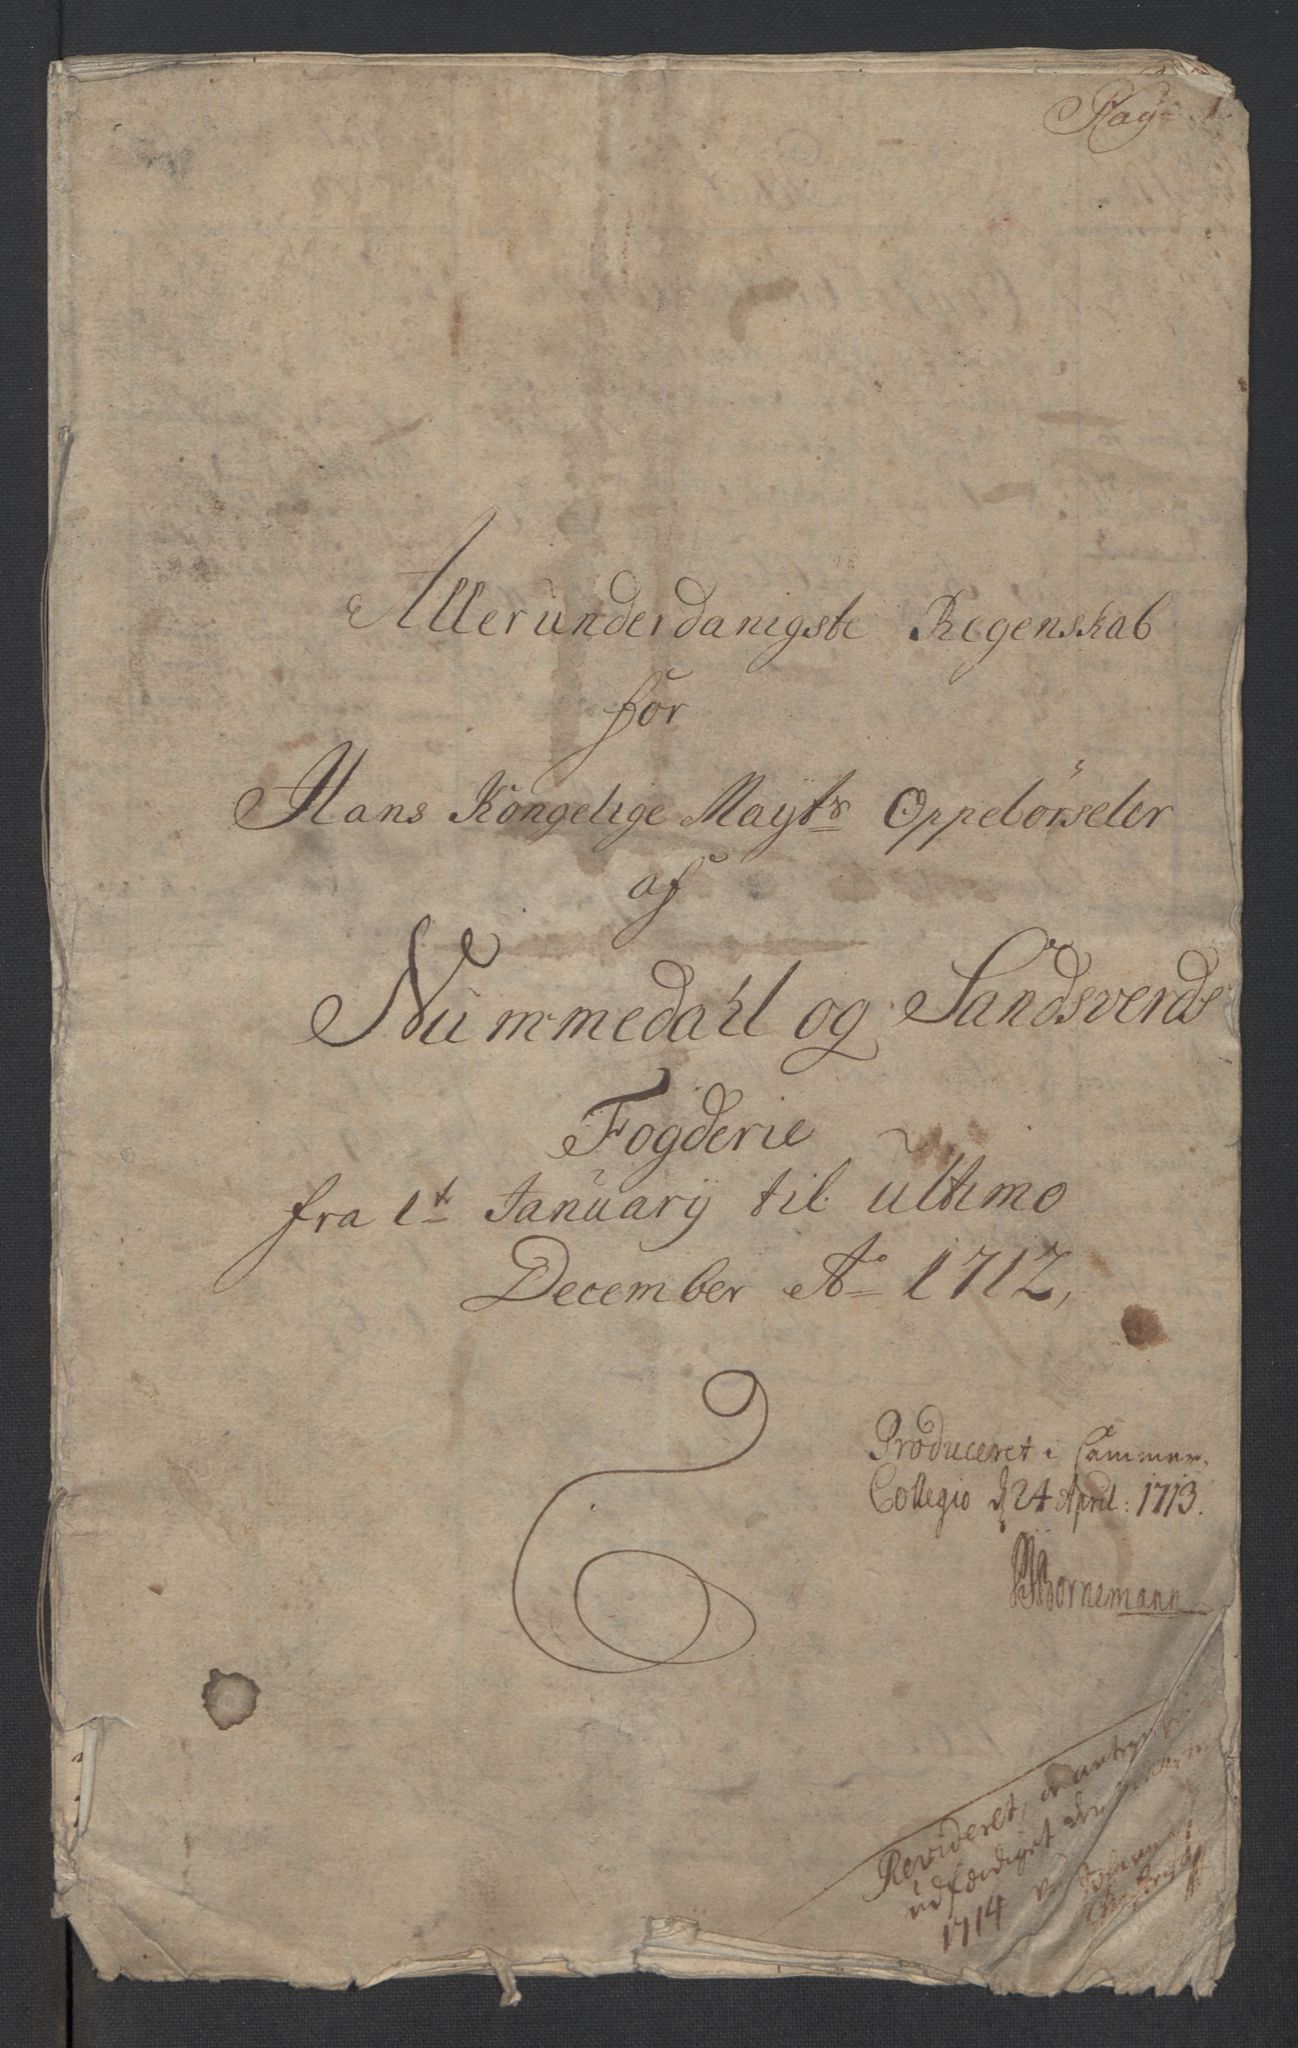 Pag: 1.
Allerunderdanigste Regenskab
for
Hans Kongelige Mayts Oppebörseler
af
Nummedahl og Sandsverds
Fogderie
fra 1t Januarij til ultimo
December Ao 1712,
Produceret i Cammer
Collegio d 24 April: 1713.
Bornemann
Revideret,
udfærdiget den
1714